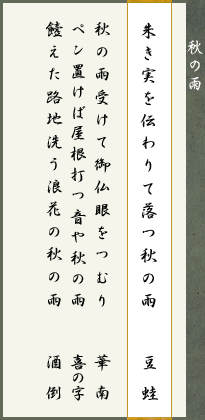 秋の雨
朱き実を伝わりて落つ秋の雨　豆蛙
秋の雨受けて御仏眼をつむり　華南
ペン置けば屋根打つ音や秋の雨　喜の字
饐えた路地洗う浪花の秋の雨　酒倒